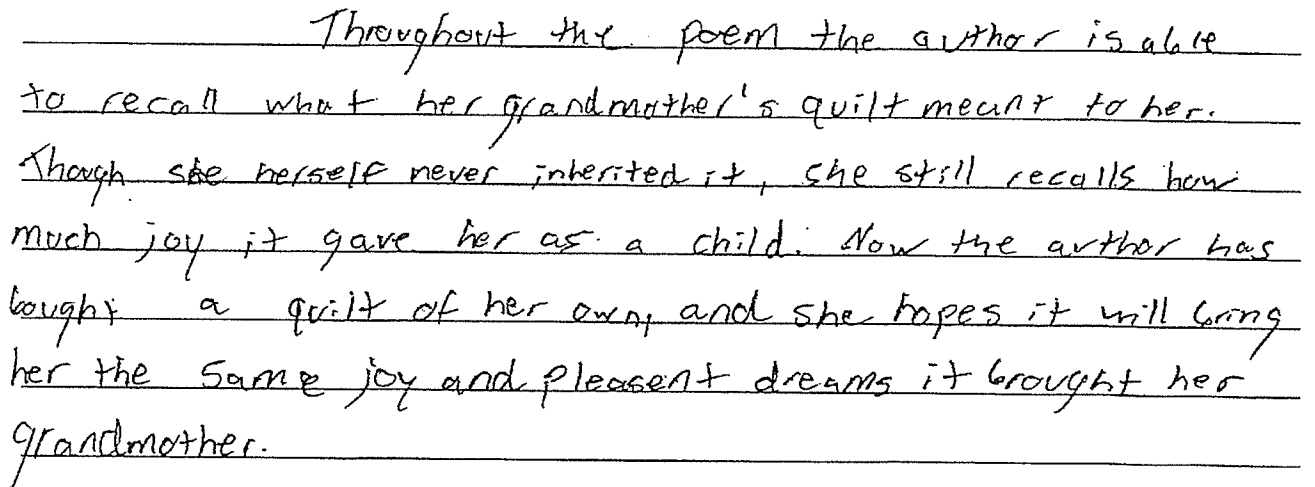 Throughout the poem the author is able
to recall what her grandmother's quilt meant to her.
Though she herself never inherited it, she still recalls how
much joy it gave her as a child. Now the author has
bought a quilt of her own, and she hopes it will bring
her the same joy and pleasent dreams it brought her
grandmother.